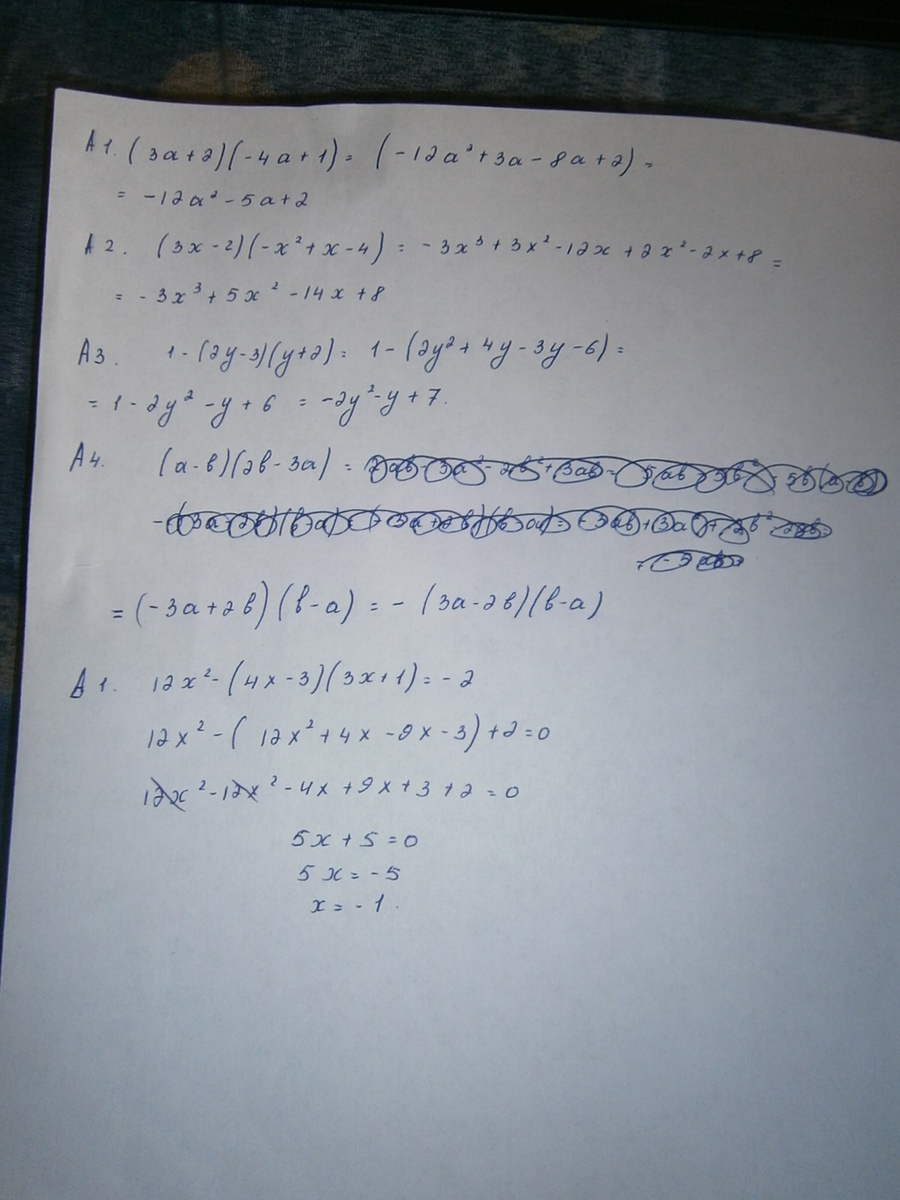 А1. (3a+2)(-4a+1) = (-12a²+3a-8a+2) =
= -12a²-5a+2
А2. (3x-2)(-x²+x-4) = -3x³+3x²-12x+2x²-2x+8 =
= -3x³+5x²-14x+8
А3. 1-(2y-3)(y+2) = 1-(2y²+4y-3y-6) =
= 1-2y²-y+6 = -2y²-y+7.
А4. (a-b)(2b-3a) =
= (-3a+2b)(b-a) = -(3a-2b)(b-a)
В1. 12x²-(4x-3)(3x+1) = -2
12x²-(12x²+4x-9x-3)+2=0
12x²-12x²-4x+9x+3+2=0
5x+5=0
5x=-5
x=-1.